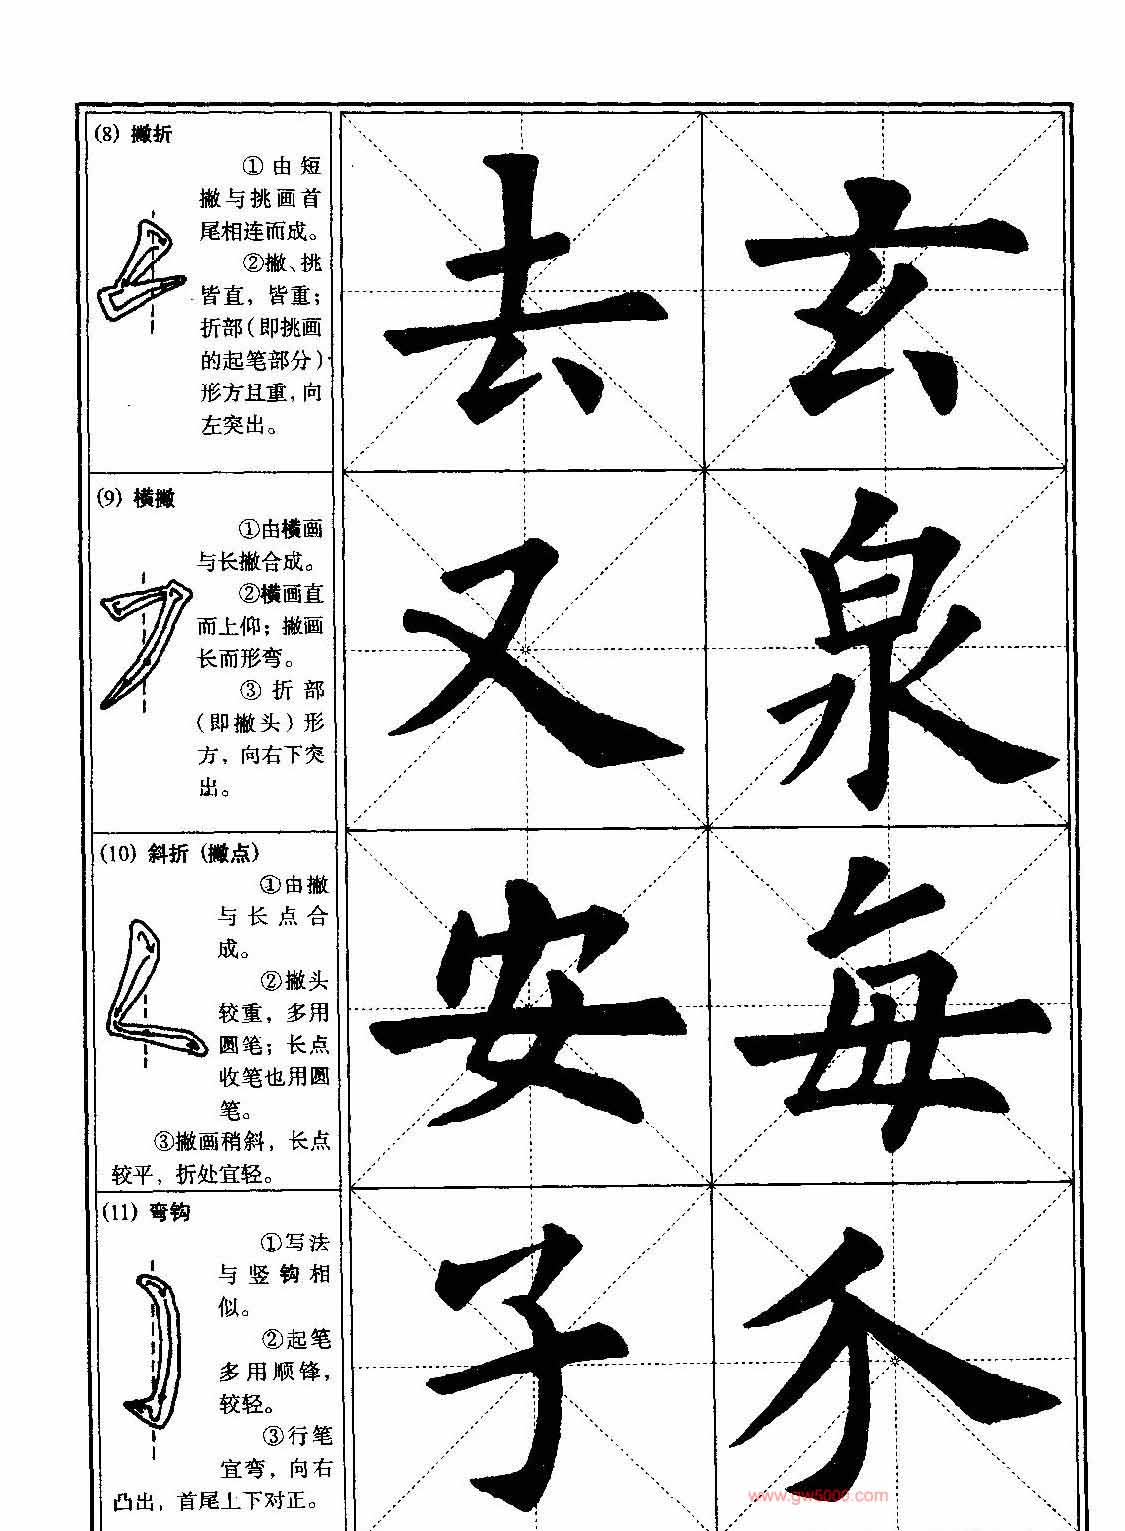 (8) 撇折
①由短
撇与挑画首
尾相连而成。
②撇、挑
皆直，皆重；
折部(即挑画
的起笔部分)
形方且重，向
左突出。
去玄
(9) 横撇
①由横画
与长撇合成。
②横画直
而上仰；撇画
长而形弯。
③折部
(即撇头)形
方，向右下突
出。
又泉
(10) 斜折 (撇点)
①由撇
与长点合
成。
②撇头
较重，多用
圆笔；长点
收笔也用圆
笔。
③撇画稍斜，长点
较平，折处宜轻。
安每
(11) 弯钩
①写法
与竖钩相
似。
②起笔
多用顺锋，
较轻。
③行笔
宜弯，向右
凸出，首尾上下对正。
子
www.gw5000.com